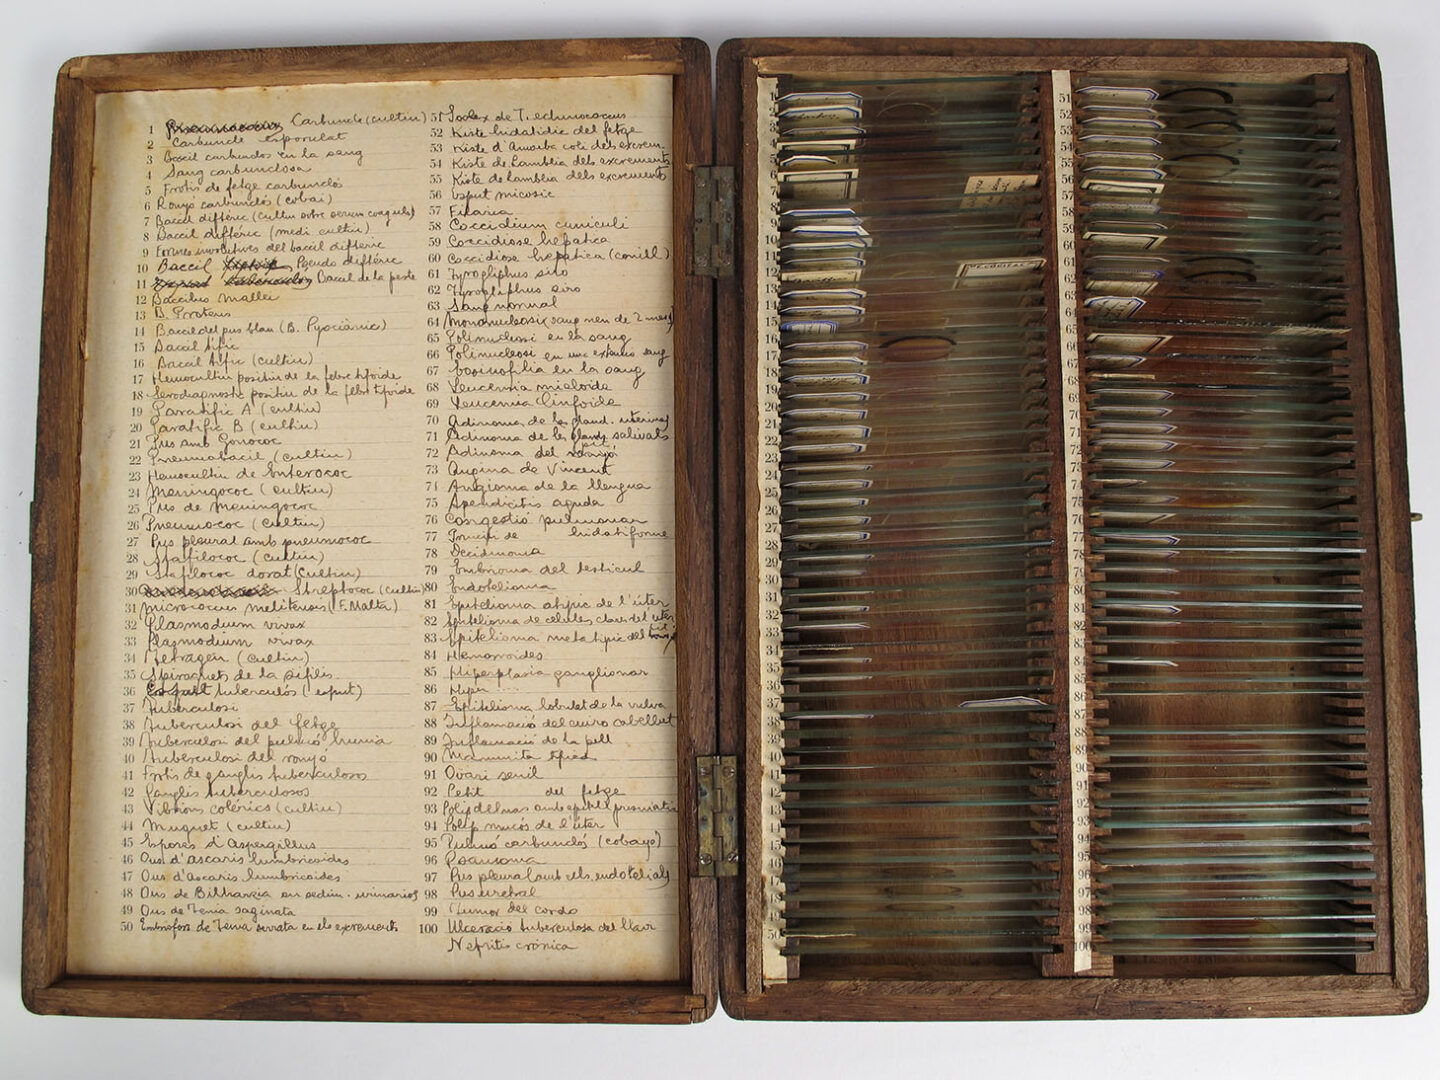 1 Carbuncle (cultiu)
2 Carbuncle esporulat
3 Bacil carbundos en la sang
4 Sang carbunclosa
5 Frotis de fetge carbunclós
6 Ronyó carbunclós (cobai)
7 Bacil diftéric (cultiu sobre serum coagulat)
8 Bacil diftéric (medi cultiu)
9 Formes involutives del bacil diftéric
10 Baccil Pseudo diftéric
11 Bacil de la peste
12 Baccilus mallei
13 B. Proteus
14 Baccil del pus blau (B. Pyociànic)
15 Bacil tífic
16 Bacil tífic (cultiu)
17 Hemocultiu positiu de la febre tifoide
18 Serodiagnostic positiu de la febre tifoide
19 Paratífic A (cultiu)
20 Paratífic B (cultiu)
21 Pus amb Gonococ
22 Pneumobacil (cultiu)
23 Hemocultiu de Enterococ
24 Meningococ (cultiu)
25 Pus de meningococ
26 Pneumococ (cultiu)
27 Pus pleural amb pneumococ
28 Stafilococ (cultiu)
29 Stafilococ dorat (cultiu)
30 Streptococ (cultiu)
31 micrococcus melitensis (F. Malta)
32 Plasmodium vivax
33 Plasmodium vivax
34 Tetragen (cultiu)
35 Spiroquets de la sífilis
36 tuberculós (esput)
37 Tuberculosi
38 Tuberculosi del fetge
39 Tuberculosi del pulmó humà
40 Tuberculosi del ronyó
41 Frotis de ganglis tuberculosos
42 Ganglis tuberculosos
43 Vibrions colérics (cultiu)
44 Muguet (cultiu)
45 Espores d'Aspergillus
46 Ous d'ascaris lumbricoides
47 Ous d'Ascaris lumbricoides
48 Ous de Bilharzia en sedim. urinarios
49 Ous de Tenia saginata
50 Embriofors de Tenia serrata en els excrements
51 Scolex de T. echinococcus
52 Kiste hidatidic del fetge
53 Kiste d'Amoiba coli dels excrem.
54 Kiste de Lamblia dels excrements
55 Kiste de Lamblia dels excrements
56 Esput micosic
57 Filaria
58 Coccidium cuniculi
59 Coccidiose hepatica
60 Coccidiose hepatica (conill)
61 Tyrogliphus siro
62 Tyrogliphus siro
63 Sang normal
64 Mononucleosis sang nen de 2 mesos
65 Polinuclosi en la sang
66 Polinucleosi en una extensió sang
67 Eosinofilia en la sang
68 Leucemia mieloide
69 Leucemia linfoide
70 Adinoma de la gland. uterina
71 Adinoma de les gland. salivals
72 Adinoma del pit
73 Angina de Vincent
74 Angioma de la llengua
75 Apendicitis aguda
76 Congestió pulmonar
77 hidatiforme
78 Deciduoma
79 Embrioma del testicul
80 Endotelioma
81 Epitelioma atipic de l'úter
82 Epitelioma de celules clares del uter
83 Epitelioma metatipic del
84 Hemorroides
85 Hiperplasia ganglionar
86 Hiper ....
87 Epitelioma lobulat de la vulva
88 Inflamació del cuiro cabellut
89 Inflamació de la pell
90
91 Ovari senil
92 Petit del fetge
93 Polip del nas amb epiteli
94 Polip mucós de l'úter
95 Pulmó carbunclós (cobayo)
96 Psamoma
97 Pus pleural amb cels endotelials
98 Pus uretral
99 Tumor del cordó
100 Ulceració tuberculosa del llavi
Nefritis crónica